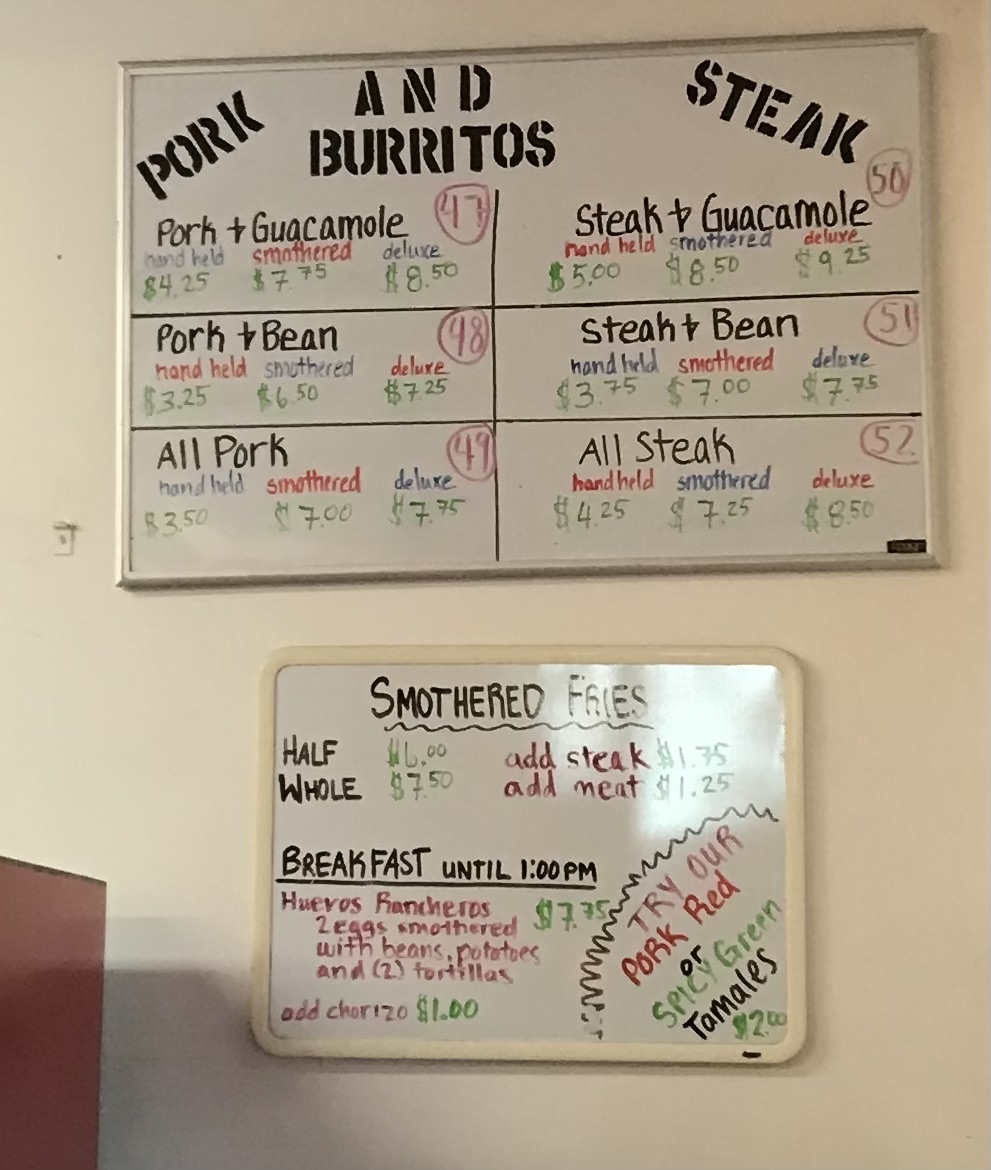 PORK AND STEAK
BURRITOS
Pork + Guacamole 47
hand held smothered deluxe
$4.25 $7.75 $8.50
Pork + Bean 48
hand held smothered deluxe
$3.25 $6.50 $7.25
All Pork 49
hand held smothered deluxe
$3.50 $7.00 $7.75
Steak + Guacamole 50
hand held smothered deluxe
$5.00 $8.50 $9.25
Steak + Bean 51
hand held smothered deluxe
$3.75 $7.00 $7.75
All Steak 52
hand held smothered deluxe
$4.25 $7.25 $8.50
SMOTHERED FRIES
HALF $6.00 add steak $1.75
WHOLE $7.50 add meat $1.25
BREAKFAST UNTIL 1:00 PM
Huevos Rancheros $7.75
2 eggs smothered
with beans, potatoes
and (2) tortillas
add chorizo $1.00
TRY OUR
PORK Red
or
SPICY Green
Tamales
$2.00